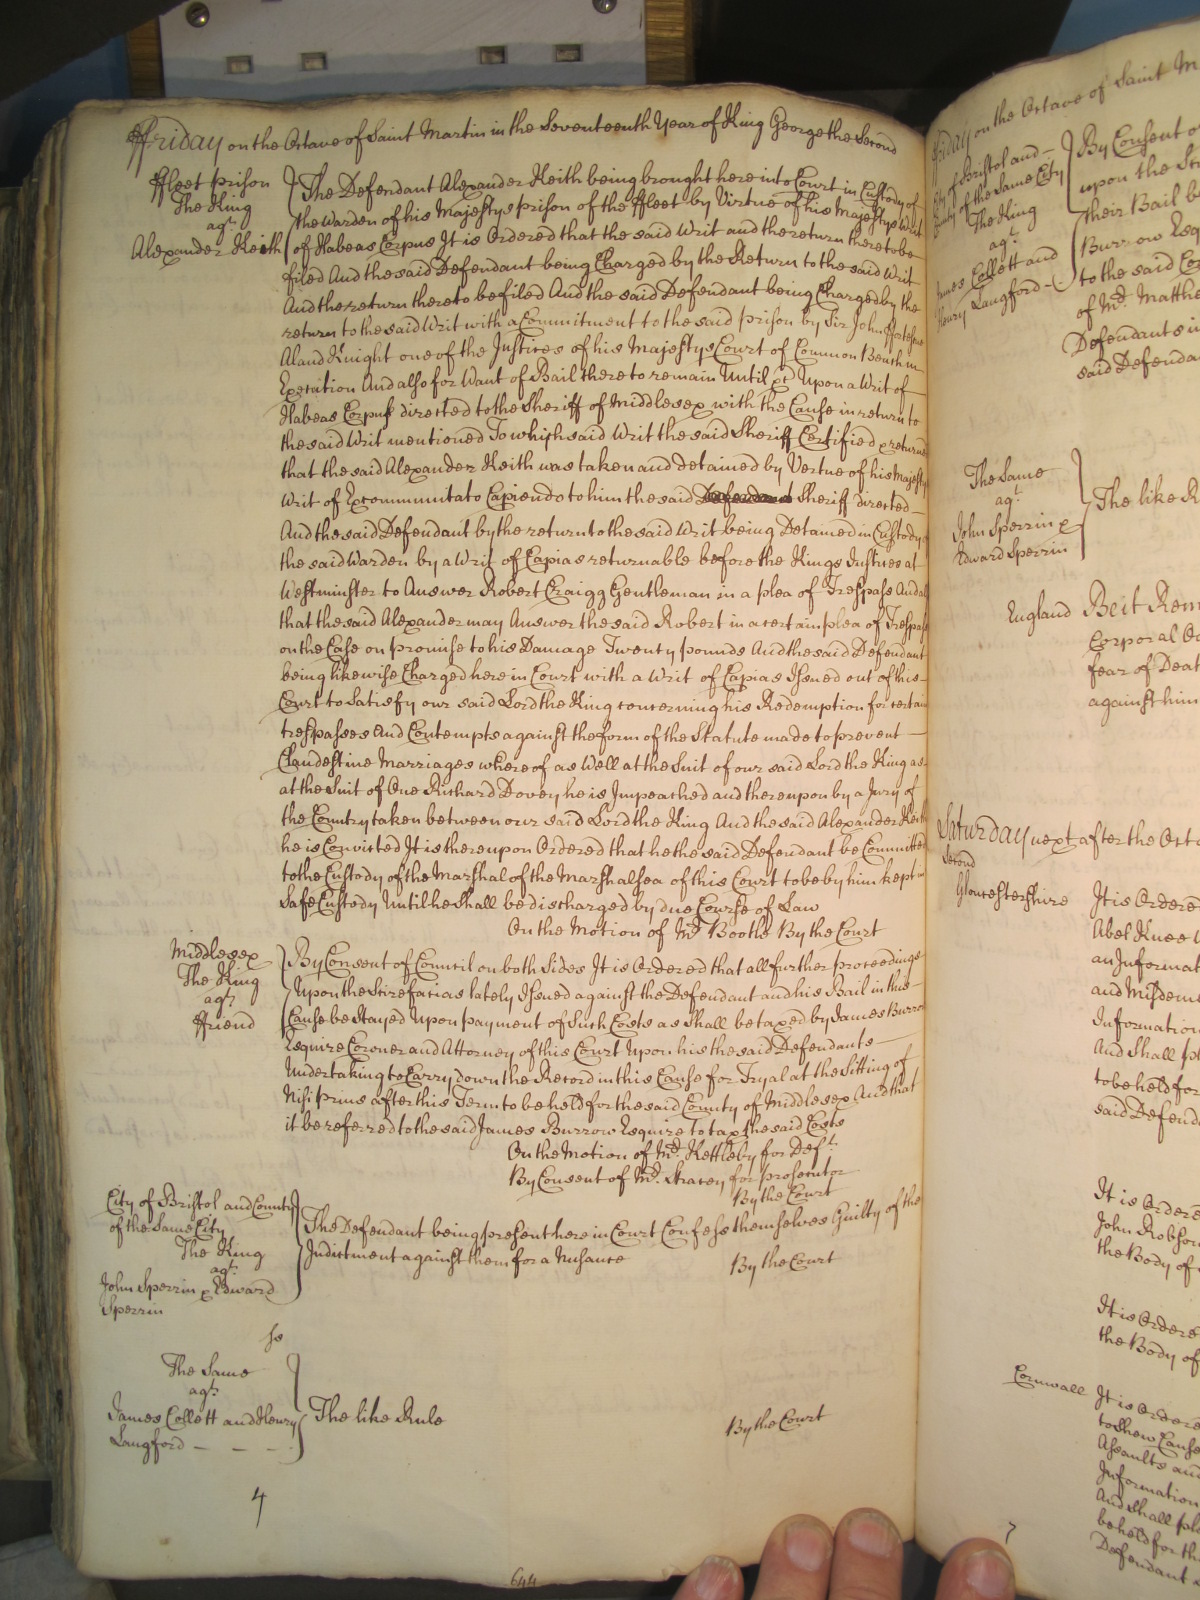 Friday on the Octave of Saint Martin in the Seventeenth Year of King George the Second
ffleet prison
The King
agt.
Alexander Keith
The Defendant Alexander Keith being brought here into Court in Custody of
the Warden of his Majestys prison of the ffleet by Virtue of his Majestys Writ
of Habeas Corpus It is Ordered that the said Writ and the return thereto be
filed And the said Defendant being Charged by the Return to the said Writ
And the return thereto be filed And the said Defendant being Charged by the
return to the said Writ with a Commitment to the said prison by Sir John ffortescue
Aland Knight one of the Justices of his Majestys Court of Common Bench in
Execution And also for Want of Bail there to remain Until &c Upon a Writ of
Habeas Corpus directed to the Sheriff of Middlesex with the Cause in return to
the said Writ mentioned To which said Writ the said Sheriff Certified & returned
that the said Alexander Keith was taken and detained by Vertue of his Majestys
Writ of Excommunicato Capiendo to him the said Defendant Sheriff directed
And the said Defendant by the return to the said Writ being Detained in Custody of
the said Warden by a Writ of Capias returnable before the Kings Justices at
Westminster to Answer Robert Craigg Gentleman in a plea of Trespass And also
that the said Alexander may Answer the said Robert in a certain plea of Trespass
on the Case on promise to his Damage Twenty pounds And the said Defendant
being likewise Charged here in Court with a Writ of Capias Issued out of this
Court to Satisfy our said Lord the King concerning his Redemption for certain
trespasses And Contempts against the form of the Statute made to prevent
Clandestine Marriages whereof as Well at the Suit of our said Lord the King as
at the Suit of One Richard Dovey he is Impeached and thereupon by a Jury of
the Country taken between our said Lord the King And the said Alexander Keith
he is Convicted It is thereupon Ordered that he the said Defendant be Committed
to the Custody of the Marshal of the Marshalsea of this Court to be by him kept in
Safe Custody Until he Shall be discharged by due Course of Law
On the Motion of Mr. Boothe By the Court
Middlesex
The King
agt.
ffriend
By Consent of Council on both Sides It is Ordered that all further proceedings
Upon the Scire facias lately Issued against the Defendant and his Bail in this
Cause be Stayed Upon payment of Such Costs as Shall be taxed by James Burrow
Esquire Coroner and Attorney of this Court Upon his the said Defendants
Undertaking to Carry down the Record in this Cause for Tryal at the Sitting of
Nisi prius after this Term to be held for the said County of Middlesex And that
it be referred to the said James Burrow Esquire to tax the said Costs
On the Motion of Mr. Kettleby for Deft.
By Consent of Mr. Stracey for prosecutor
By the Court
City of Bristol and County
of the Same City
The King
agt.
John Sperrin & Edward
Sperrin
The Defendant being present here in Court Confess themselves Guilty of the
Indictment against them for a Nusance
By the Court
The Same
agt.
James Collett and Henry
Langford
The like Rule
By the Court
4
644
ffriday on the Octave of Saint M
City of Bristol and
County of the Same City
The King
agt.
James Collett and
Henry Langford
By Consent o
upon the
their Bail b
Burrow Esq
to the said
of Mr. Matthe
Defendants in
said Defenda
The Same
agt.
John Sperrin &
Edward Sperrin
The like R
England Be it Rem
Corporal Oa
fear of Deat
against him
Saturday next after the Octa
Second
Gloucestershire It is Ordered
Abel Knee
an Informat
and Misdeme
Information
And Shall pl
to be held for
said Defend
It is Ordere
John Robson
the Body of
It is Ordere
the Body of
Cornwall It is Ordere
to Shew Cause
Assaults and
Information
And Shall ple
be held for th
Defendant
7